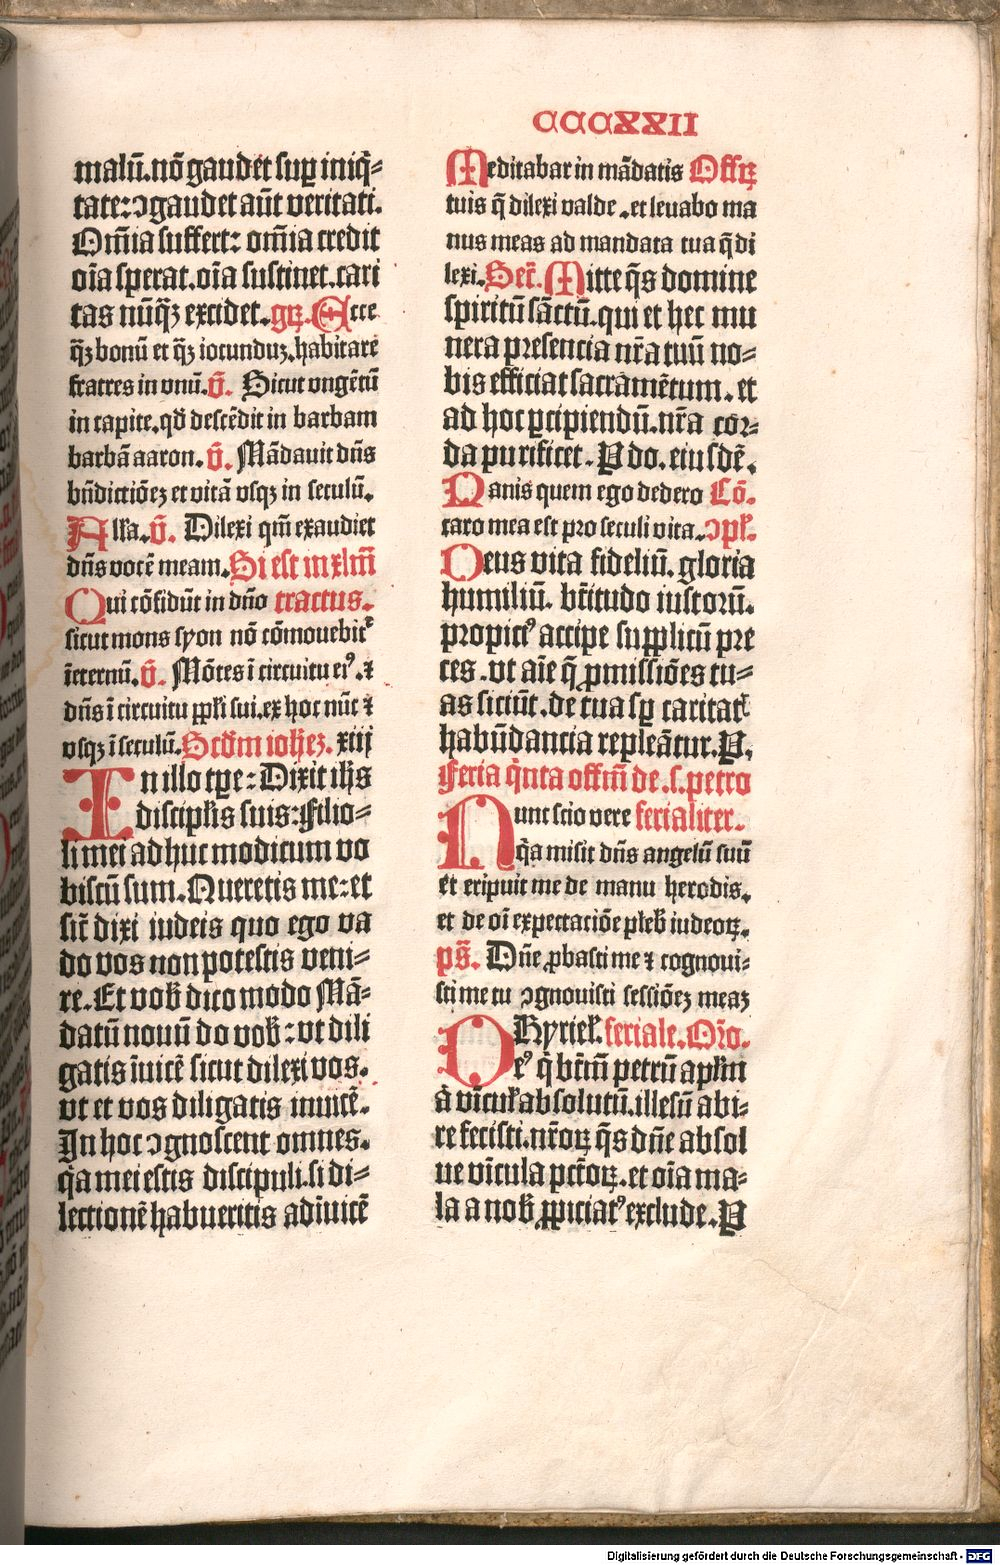 CCCXXII
malū.nō gaudet suꝑ iniq̄⸗
tate: ꝯgaudet aūt veritati.
Om̄ia suffert: om̄ia credit
oīa sperat.oīa sustinet.cari
tas nūqꝫ excidet.gꝝ. Ecce
qꝫ bonū et qꝫ iocunduꝫ.habitare
fratres in vnū.v̄. Sicut vngētū
in capite.qd̄ descēdit in barbam
barbā aaron.v̄. Mādauit dn̄s
bn̄dictiōeꝫ et vitā vsqꝫ in seculū.
Alla.v̄. Dilexi qm̄ exaudiet
dn̄s vocē meam.Si est in xlm̄
Qui cōfidūt in dn̄o tractus.
sicut mons syon nō cōmouebit᷑
īeternū.v̄. Mōtes ī circuitu ei⁹.⁊
dn̄s ī circuitu ppli sui.ex hoc nūc ⁊
vsqꝫ ī seculū.Scd̄m iohꝫ. xiij
In illo tꝑe: Dixit ihs
discipĺis suis: Filio⸗
li mei adhuc modicum vo
biscū sum.Queretis me: et
sic̄ dixi iudeis quo ego va
do vos non potestis veni⸗
re.Et vob̄ dico modo Mā⸗
datū nouū do vob̄: vt dili
gatis īuicē sicut dilexi vos.
vt et vos diligatis inuicē.
In hoc ꝯgnoscent omnes.
q̄a mei estis discipuli.si di⸗
lectionē habueritis adīuicē
Meditabar in mādatis Offꝝ
tuis q̄ dilexi valde.et leuabo ma
nus meas ad mandata tua q̄ di
lexi.Secr̄. Mitte q̄s domine
spiritū sāctū.qui et hec mu
nera presencia nr̄a tuū no⸗
bis efficiat sacramētum.et
ad hoc ꝑcipiendū.nr̄a cor⸗
da purificet.P do.eiusdē.
Panis quem ego dedero Cō.
caro mea est pro seculi vita.ꝯpł.
Deus vita fideliū.gloria
humiliū. bt̄itudo iustorū.
propici⁹ accipe supplicū pre
ces.vt aīe q̄ ꝓmissiōes tu⸗
as siciūt.de tua sꝑ caritat᷑
habūdancia repleātur.P.
Feria q̄nta offm̄ de .s.petro
Nunc scio vere ferialiter.
q̄a misit dn̄s angelū suū
et eripuit me de manu herodis.
et de oī expectaciōe pleb̄ iudeoꝝ.
ps̄. Dn̄e ꝓbasti me ⁊ cognoui⸗
sti me tu ꝯgnouisti sessiōeꝫ meaꝫ
Kyriel̄.feriale.Or̄o.
De⁹ q̄ bt̄m̄ petrū apl̄m
a vīcul̄ absolutū.illesū abi⸗
re fecisti.nr̄oꝝ q̄s dn̄e absol
ue vīcula pctōꝝ.et oīa ma⸗
la a nob̄ ꝓpiciat⁹ exclude.P
Digitalisierung gefördert durch die Deutsche Forschungsgemeinschaft - DFG